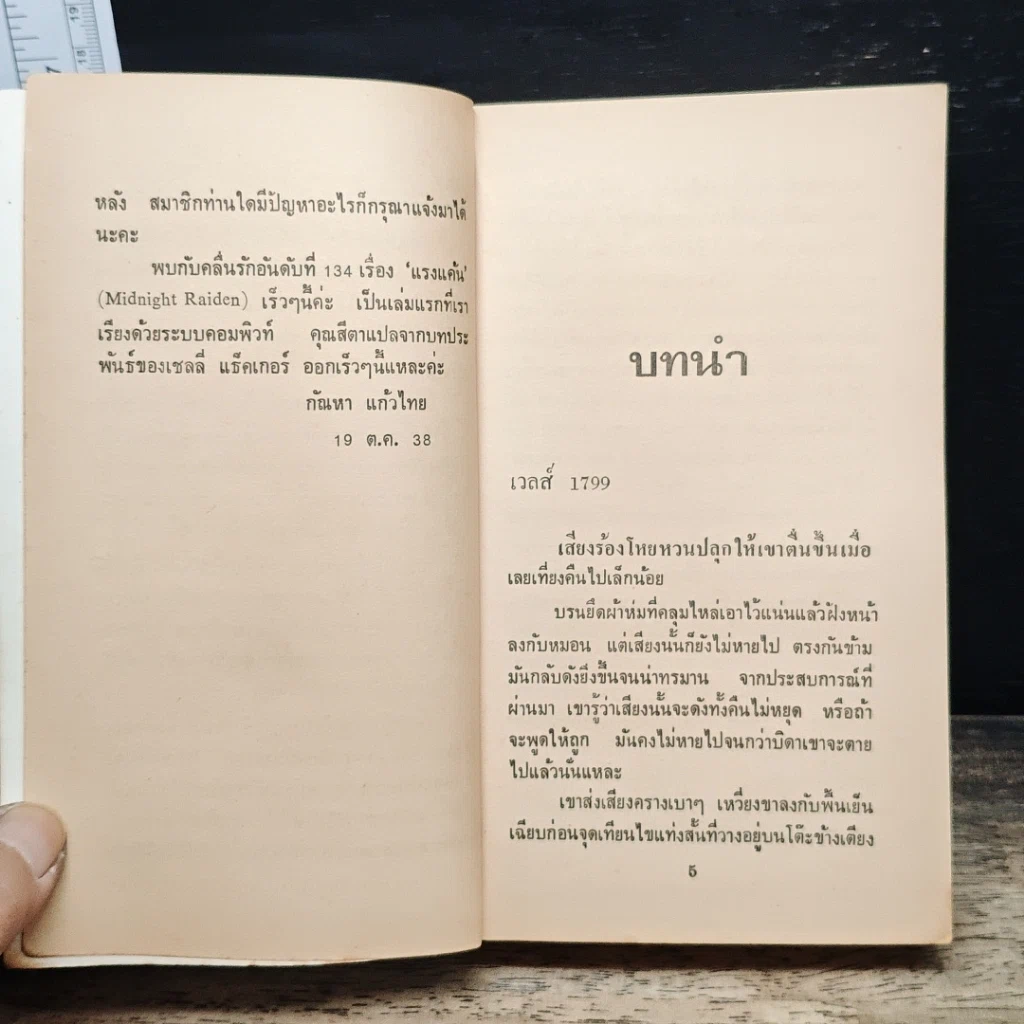 19
18
หลัง สมาชิกท่านใดมีปัญหาอะไรก็กรุณาแจ้งมาได้
นะคะ
พบกับคลื่นรักอันดับที่ 134 เรื่อง 'แรงแค้น'
(Midnight Raiden) เร็วๆนี้ค่ะ เป็นเล่มแรกที่เรา
เรียงด้วยระบบคอมพิวท์ คุณสีตาแปลจากบทประ
พันธ์ของเชลลี่ แธ็คเกอร์ ออกเร็วๆนี้แหละค่ะ
กัณหา แก้วไทย
19 ต.ค. 38
บทนำ
เวลส์ 1799
เสียงร้องโหยหวนปลุกให้เขาตื่นขึ้นเมื่อ
เลยเที่ยงคืนไปเล็กน้อย
บรนยึดผ้าห่มที่คลุมไหล่เอาไว้แน่นแล้วฝังหน้า
ลงกับหมอน แต่เสียงนั้นก็ยังไม่หายไป ตรงกันข้าม
มันกลับดังยิ่งขึ้นจนน่าทรมาน จากประสบการณ์ที่
ผ่านมา เขารู้ว่าเสียงนั้นจะดังทั้งคืนไม่หยุด หรือถ้า
จะพูดให้ถูก มันคงไม่หายไปจนกว่าบิดาเขาจะตาย
ไปแล้วนั่นแหละ
เขาส่งเสียงครางเบาๆ เหวี่ยงขาลงกับพื้นเย็น
เฉียบก่อนจุดเทียนไขแท่งสั้นที่วางอยู่บนโต๊ะข้างเตียง
5